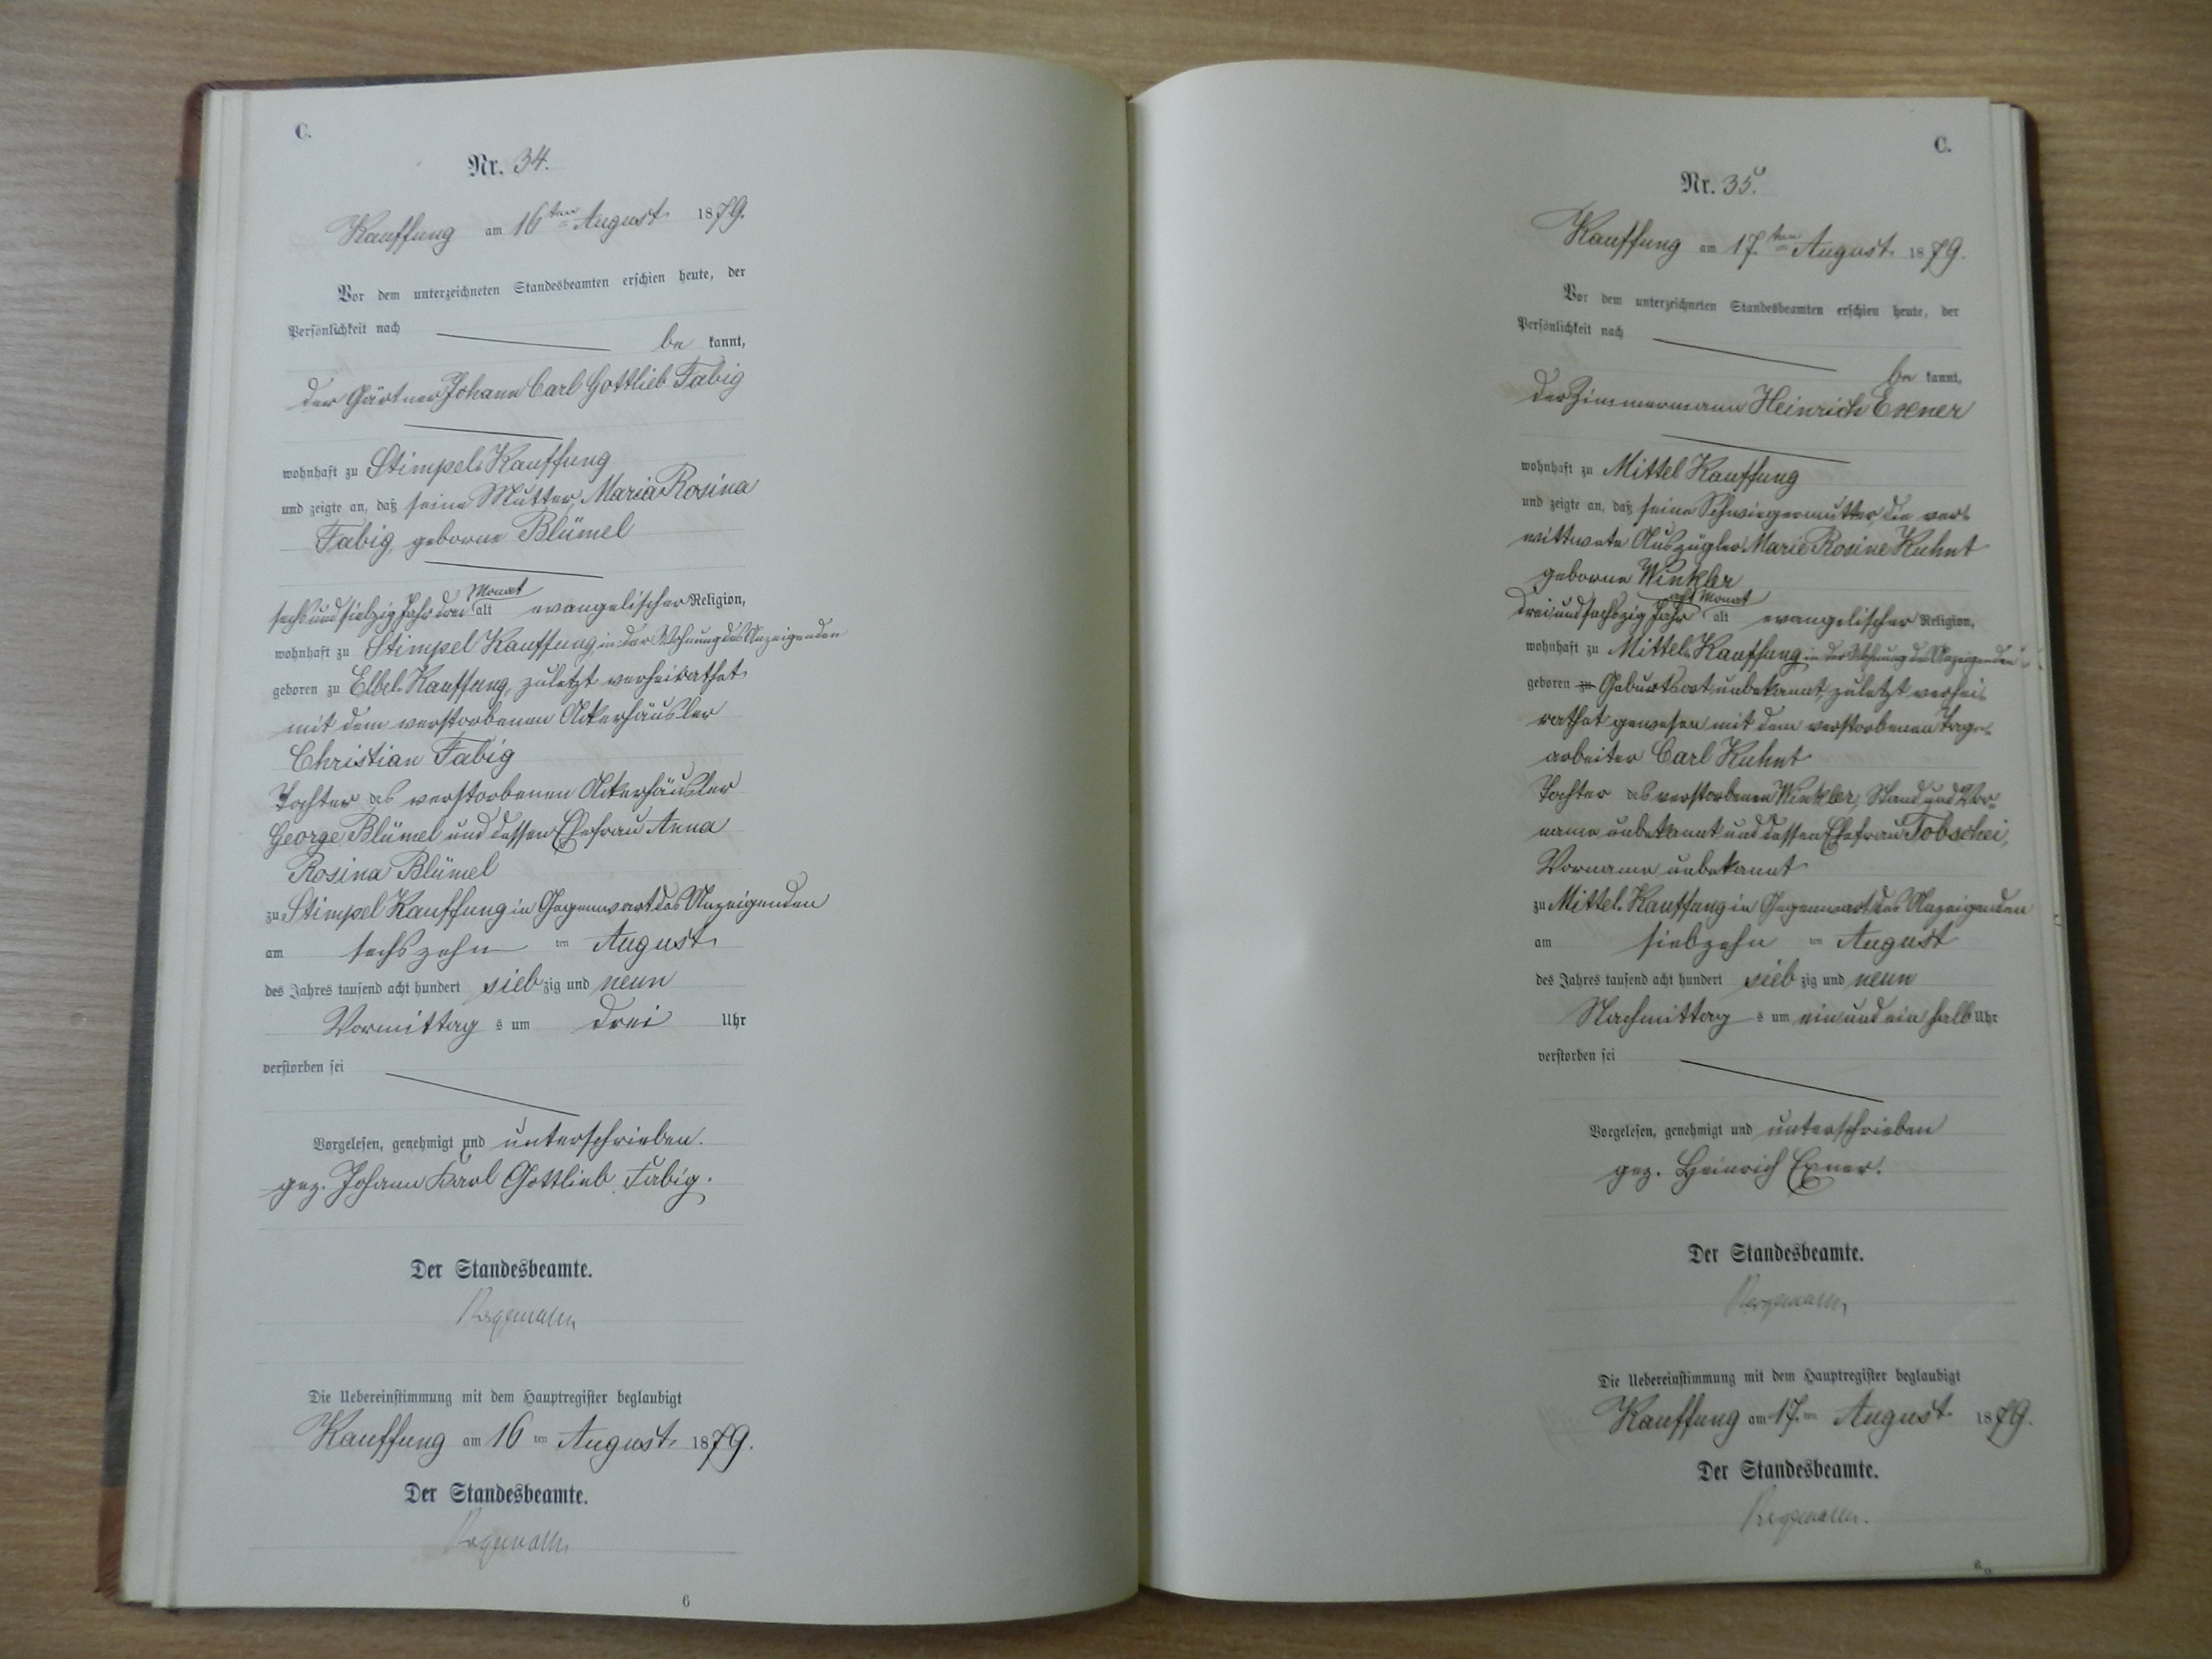 C.
Nr. 34.
Kauffung am 16ten August 1879.
Vor dem unterzeichneten Standesbeamten erschien heute, der
Persönlichkeit nach
be kannt,
der Gärtner Johann Carl Gottlieb Fabig
wohnhaft zu Stimpel-Kauffung
und zeigte an, daß seine Mutter, Maria Rosina
Fabig, geborne Blümel
Monat
sechsundsiebzig Jahr drei alt evangelischer Religion,
wohnhaft zu Stimpel Kauffung in der Wohnung des Anzeigenden
geboren zu Elbel-Kauffung, zuletzt verheirathet
mit dem verstorbenen Ackerhäusler
Christian Fabig
Tochter des verstorbenen Ackerhäusler
George Blümel und dessen Ehefrau Anna
Rosina Blümel
zu Stimpel Kauffung in Gegenwart des Anzeigenden
am sechszehn ten August
des Jahres tausend acht hundert sieb zig und neun
Vormittag s um drei Uhr
verstorben sei
Vorgelesen, genehmigt und unterschrieben.
gez. Johann Karl Gottlieb Fabig.
Der Standesbeamte.
Die Uebereinstimmung mit dem Hauptregister beglaubigt
Kauffung am 16 ten August 1879.
Der Standesbeamte.
6
C.
Nr. 35.
Kauffung am 17.ten August 1879.
Vor dem unterzeichneten Standesbeamten erschien heute, der
Persönlichkeit nach
be kannt,
der Zimmermann Heinrich Exner
wohnhaft zu Mittel Kauffung
und zeigte an, daß seine Schwiegermutter, die ver-
wittwete Auszügler Marie Rosine Kuhnt
geborne Winkler
acht Monat
dreiundsechszig Jahr alt evangelischer Religion,
wohnhaft zu Mittel-Kauffung in der Wohnung des Anzeigenden
geboren zu Geburtsort unbekannt, zuletzt verhei-
rathet gewesen mit dem verstorbenen Tage-
arbeiter Carl Kuhnt
Tochter des verstorbenen Winkler, Stand und Vor-
name unbekannt und dessen Ehefrau Tobschei,
Vorname unbekannt
zu Mittel-Kauffung in Gegenwart des Anzeigenden
am siebzehn ten August
des Jahres tausend acht hundert sieb zig und neun
Nachmittag s um ein und ein halb Uhr
verstorben sei
Vorgelesen, genehmigt und unterschrieben
gez. Heinrich Exner.
Der Standesbeamte.
Die Uebereinstimmung mit dem Hauptregister beglaubigt
Kauffung am 17. ten August 1879.
Der Standesbeamte.